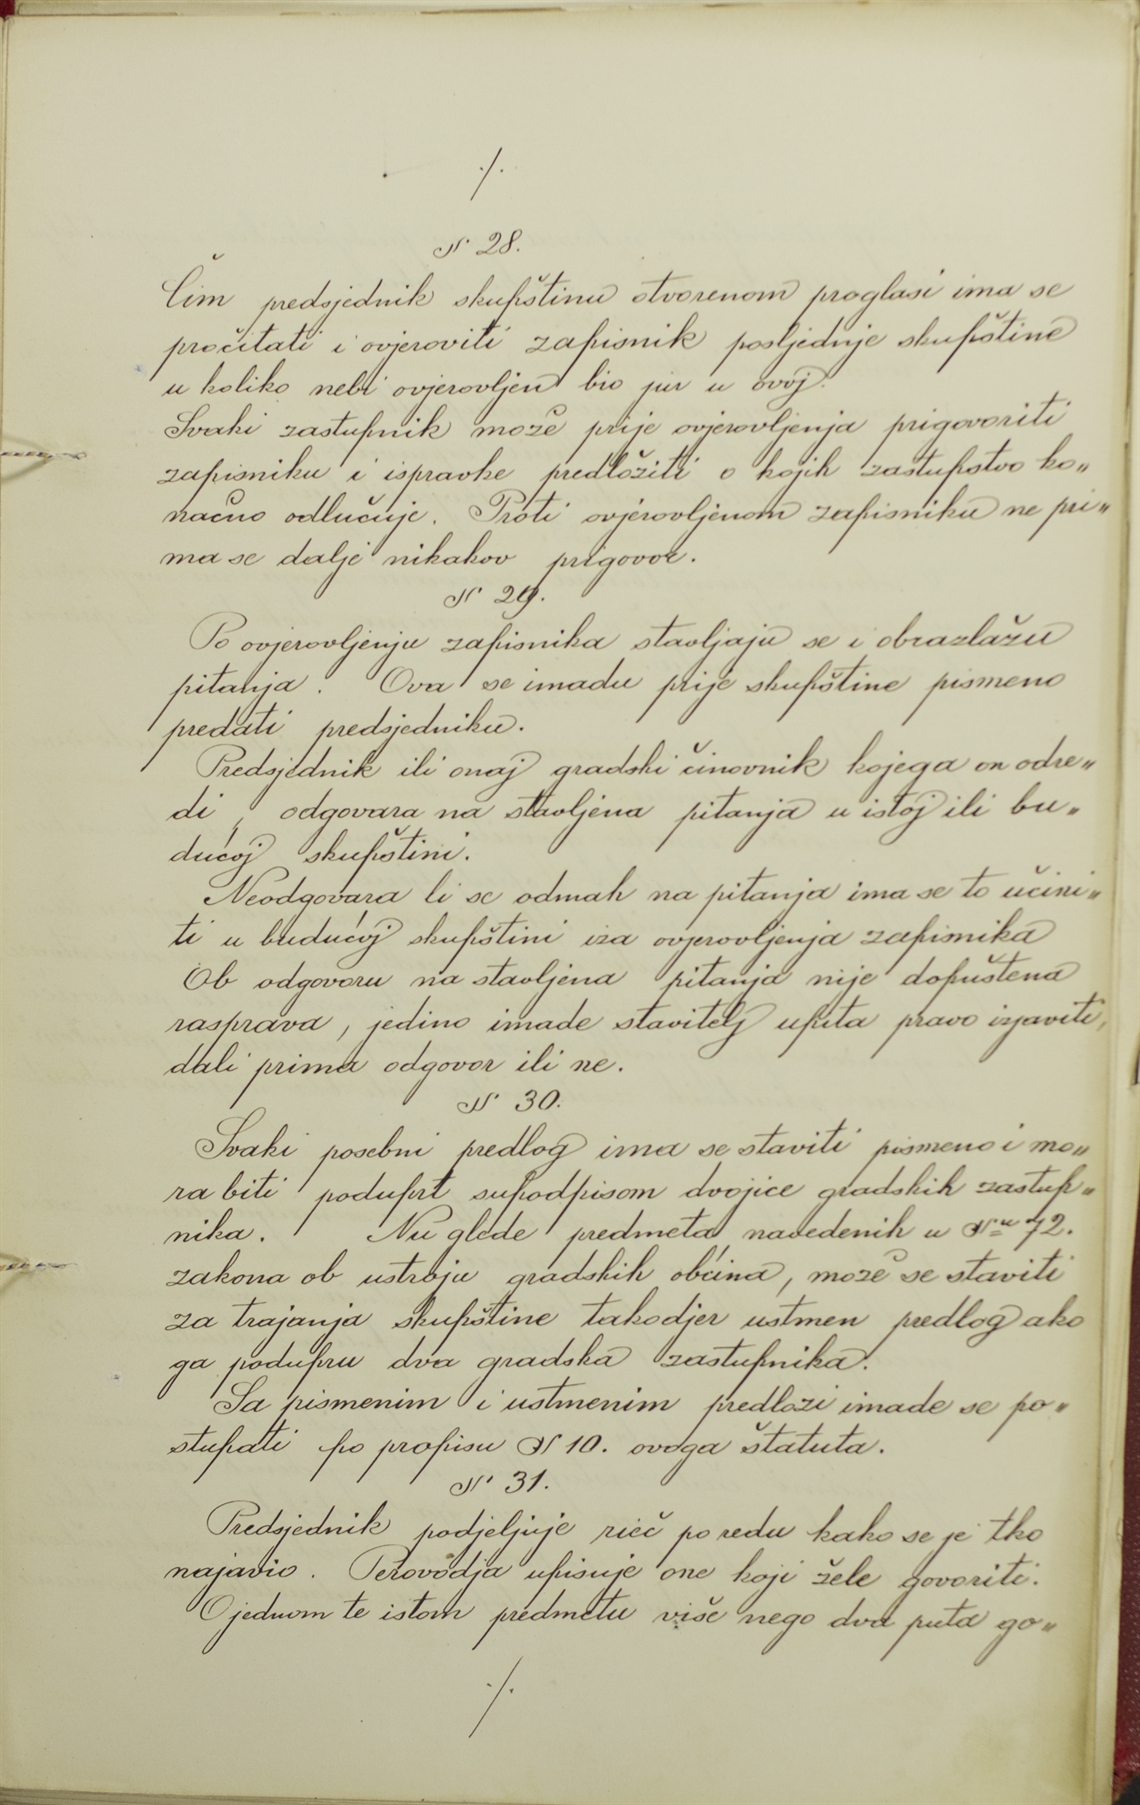 ·/·
№ 28.
Čim predsjednik skupštinu otvorenom proglasi ima se
pročitati i ovjeroviti zapisnik posljednje skupštine
u koliko nebi ovjerovljen bio jur u ovoj.
Svaki zastupnik može prije ovjerovljenja prigovoriti
zapisniku i ispravke predložiti o kojih zastupstvo ko„
načno odlučuje. Proti ovjerovljenom zapisniku ne pri„
ma se dalje nikakov prigovor.
№ 29.
Po ovjerovljenju zapisnika stavljaju se i obrazlažu
pitanja. Ova se imadu prije skupštine pismeno
predati predsjedniku.
Predsjednik ili onaj gradski činovnik kojega on odre„
di, odgovara na stavljena pitanja u istoj ili bu„
dućoj skupštini.
Neodgovara li se odmah na pitanja ima se to učini„
ti u budućoj skupštini iza ovjerovljenja zapisnika
Ob odgovoru na stavljena pitanja nije dopuštena
rasprava, jedino imade stavitelj upita pravo izjaviti,
dali prima odgovor ili ne.
№ 30.
Svaki posebni predlog ima se staviti pismeno i mo„
ra biti poduprt supodpisom dvojice gradskih zastup„
nika. Nu glede predmeta navedenih u №u 72.
zakona ob ustroju gradskih obćina, može se staviti
za trajanja skupštine takodjer ustmen predlog ako
ga podupru dva gradska zastupnika.
Sa pismenim i ustmenim predlozi imade se po„
stupati po propisu № 10. ovoga štatuta.
№ 31.
Predsjednik podjeljuje rieč po redu kako se je tko
najavio. Perovodja upisuje one koji žele govoriti.
O jednom te istom predmetu više nego dva puta go„
·/·